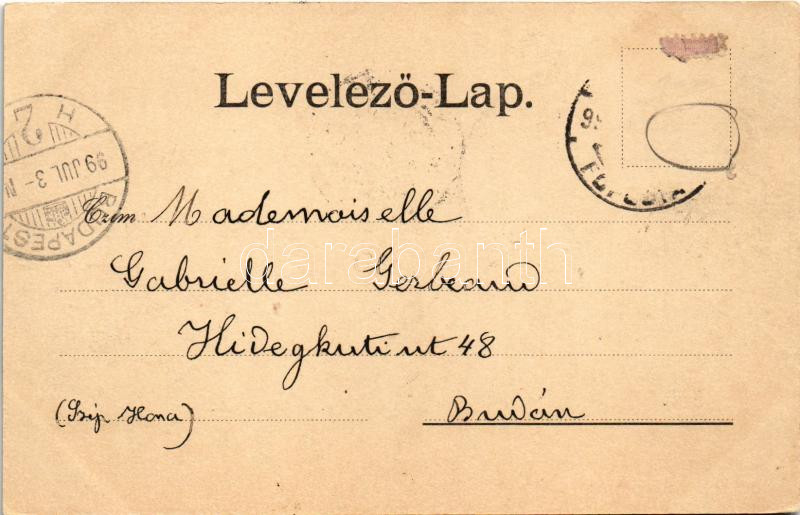 Levelező-Lap.
BUDAPEST
99 JUL 3
Czim Mademoiselle
Gabrielle Gerbeaud
Hidegkuti ut 48
(Szép Ilona)
Budán
darabanth